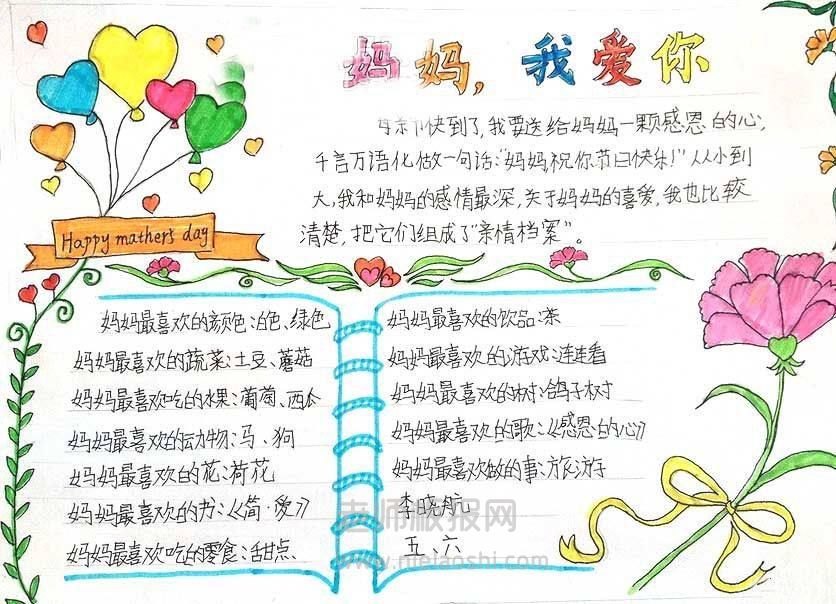 妈妈,我爱你
母亲节快到了,我要送给妈妈一颗感恩的心,
千言万语化做一句话:“妈妈,祝你节日快乐!”从小到
大,我和妈妈的感情最深,关于妈妈的喜爱,我也比较
清楚,把它们组成了“亲情档案”。
Happy mathers day
妈妈最喜欢的颜色:白色、绿色
妈妈最喜欢的蔬菜:土豆、蘑菇
妈妈最喜欢吃的水果:葡萄、西
妈妈最喜欢的动物:马、狗
妈妈最喜欢的花:荷花
妈妈最喜欢的书:《简·爱》
妈妈最喜欢吃的零食:甜点、
妈妈最喜欢的饮品:茶
妈妈最喜欢的游戏:连连看
妈妈最喜欢的树:鸽子树
妈妈最喜欢的歌:《感恩的心》
妈妈最喜欢做的事:旅游
李晓航
五、六
老师板报网
www.nielaoshi.com